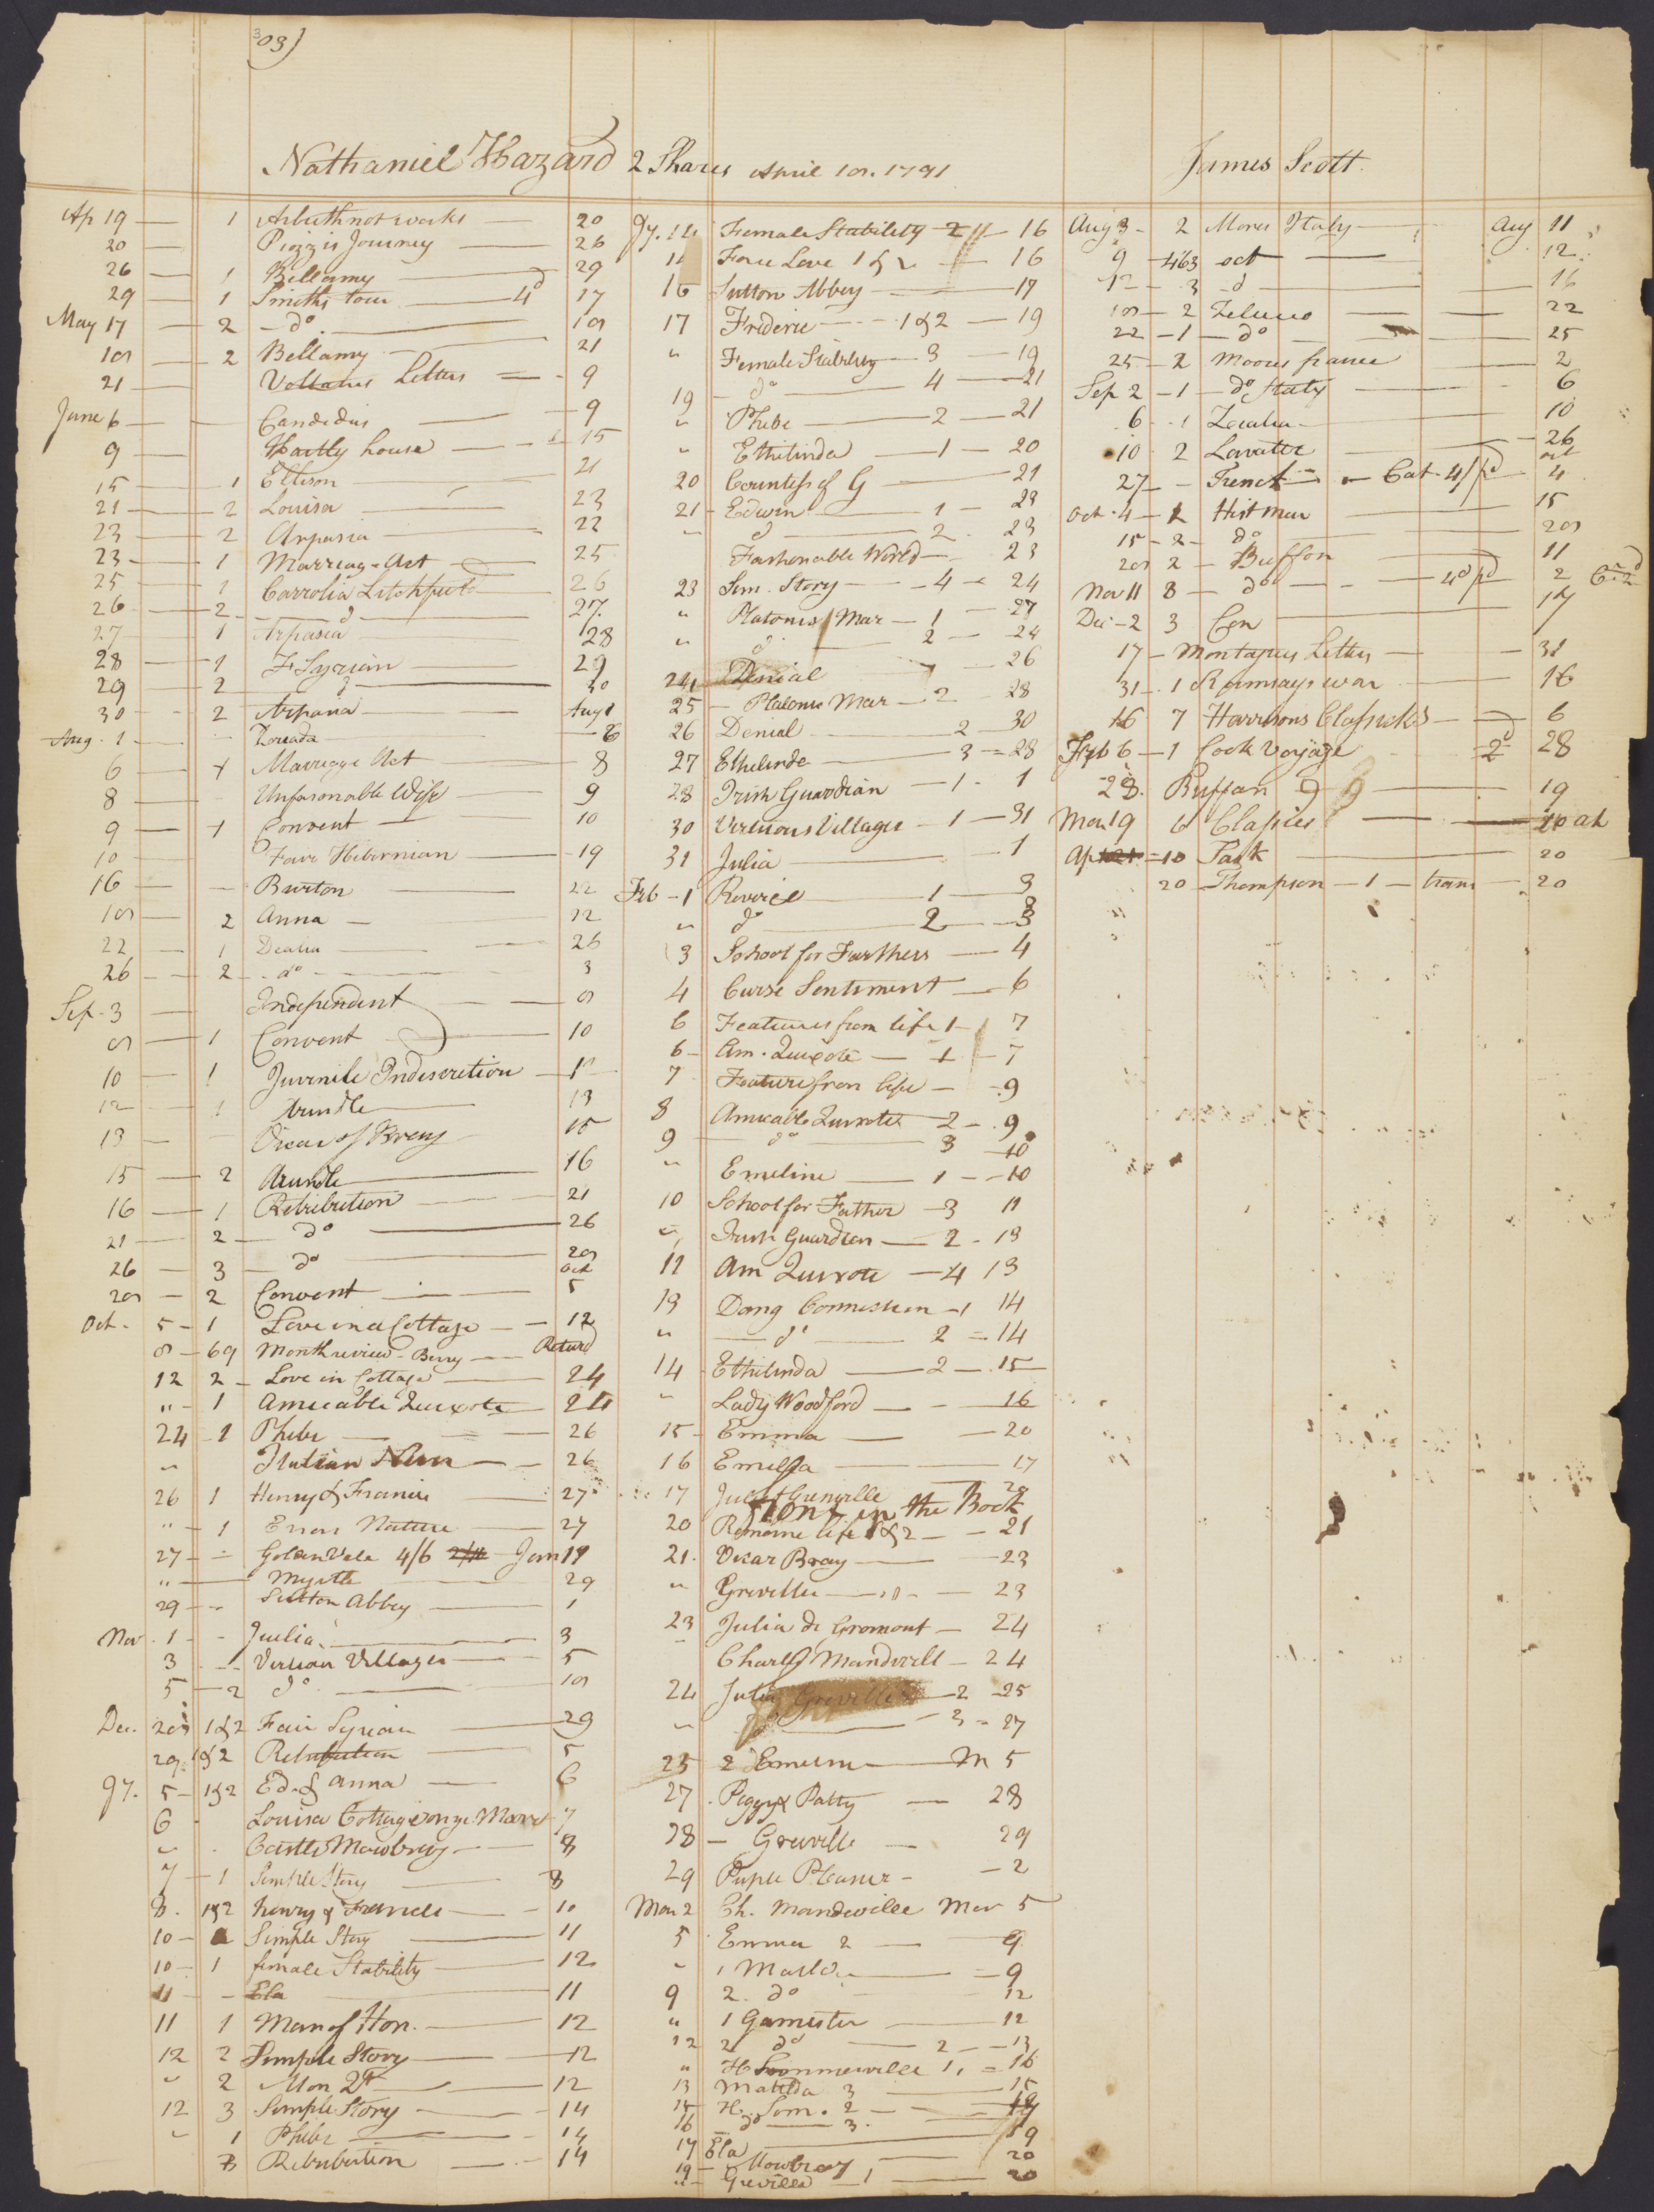 303)
Nathaniel Hazard 2 Shares April 18. 1791
Ap 19 — 1 Arbuthnot works — 20
20 — Piozzis Journey — 26
26 — 1 Bellamy — 29
29 — 1 Smiths tour — 4d 17
May 17 — 2 — do — 18
18 — 2 Bellamy — 21
21 — Letters — 9
June 6 — Candidus — 9
9 — Hartly house — 15
15 — 1 Ellison 21
21 — 2 Louisa — 23
23 — 2 Arpasia — 22
23 — 1 Marriag-Act — 25
25 — 1 Carrolia Litchfield — 26
26 — 2 — d — 27
27 — 1 Arpasia 28
28 — 1 F Syrian — 29
29 — 2 — d — 30
30 — 2 Arpasia — Augt
Aug. 1 — Zoriada — 6
6 — 1 Marriage Act — 8
8 — Unfasonable Wife — 9
9 — 1 Convent — 10
10 — Fair Hibernian — 19
16 — Burton — 22
18 — 2 Anna — 22
22 — 1 — 26
26 — 2 — do — 3
Sep. 3 — Independent — 8
8 — 1 Convent — 10
10 — 1 Juvenile Indiscretion — 12
12 — 1 Arundle — 13
13 — Vicar of Bray 15
15 — 2 Arundle — 16
16 — 1 Retribution — 21
21 — 2 — do — 26
26 — 3 — do — 28
28 — 2 Convent — Oct 5
Oct. 5 — 1 Love in a Cottage — 12
8 — 69 Month review — Berry — Returd
12 2 — Love in Cottage — 24
" — 1 Amicable Quixote — 24
24 — 1 Phebe — 26
" Italian Nun — 26
26 1 Henry & Francis — 27
" — 1 Errors Nature — 27
27 — Golden Vale 4/6 — Jan 17
" — Myrtle — 29
29 — Sutton Abby — 1
Nov. 1 — Juilia — 3
3 — Virtuous Villager — 5
5 — 2 do — 18
Dec. 28 1&2 Fair Syrian — 29
29 1&2 Retribution — 5
Jy. 5 — 1&2 Ed. & Anna — 6
6 — Louisa Cottage on ye Moors 7
" — Castle Mowbray — 8
7 — 1 Simple Story — 8
8. 1&2 henry & Francis — 10
10 — 2 Simple Story — 11
10 — 1 female Stability — 12
11 — Ela — 11
11 1 Man of Hon. — 12
12 2 Simple Story — 12
" 2 Mon — 12
12 3 Simple Story — 14
" 1 Phebe — 14
3 Retribution — 14
Jy. 14 Female Stability — 2 — 16
14 Force Love 1 & 2 — 16
16 Sutton Abbey — 17
17 Frideric — 1 & 2 — 19
" Female Stability — 3 — 19
19 — do — 4 — 21
" Phebe — 2 — 21
" Ethelinda — 1 — 20
20 Countess of G — 21
21 — Edwin — 1 — 23
" — d — 2 — 23
Fashonable World — 23
23 Sim. Story — 4 — 24
" Platonis Mar — 1 — 27
" d — 2 — 24
24 Denial — 26
25 — Platonic Mar — 2 — 28
26 Denial — 2 — 30
27 Ethelinde — 3 — 28
28 Irish Guardian — 1 — 1
30 Virtuous Villager — 1 — 31
31 Julia — 1
Feb — 1 Reverie — 1 — 3
" do — 2 — 3
3 School for Farthers — 4
4 Curse Sentiment — 6
6 Features from life 1 — 7
6 — Am. Quixote — 1 — 7
7 Feature from life — 9
8 Amicable Quixote 2 — 9
9 — do — 3 — 10
" Emeline — 1 — 10
10 School for Father — 3 11
" Irish Guardian — 2 — 13
11 Am Quixote — 4 13
13 Dang Connection — 1 14
" — do — 2 — 14
14 — Ethelinda — 2 — 15
" Lady Woodford — 16
15 — Emma — 20
16 Emilia — 17
17 Julia Grenville — 20
in the Book
20 Romaine life 1 & 2 — 21
21. Vicar Bray — 23
" Greville — 23
23 Julia de Gromont — 24
" Charles Mandivell — 24
24 Julia Greville — 2 — 25
" do — 3 — 27
25 2 — M 5
27. Peggy & Patty — 28
28 — Greville — 29
29 Purple Pleasur — 2
Mar 2 Ch. Mandeville Mar 5
5 Emma 2 — 9
" 1 — 9
9 2. do — 12
" 1 Gamester — 12
12 2 do — 2 — 13
" H Sommerville 1. — 16
13 Matilda 3 — 15
15 H. Som. 2 —
16 do — 3. — 19
17 Ela
19 — Mowbray — 20
" — Greville — 1 — 20
James Scott.
Aug 3 — 2 Mores Italy — Aug 11
9 — 463 oct — 12
12 — 3 — d — 16
18 — 2 Zeluco — 22
22 — 1 — do — 25
25 — 2 Moores france — 2
Sep 2 — 1 — do Italy — 6
6 — 1 — 10
10 2 Lavater — 26
27 — Trenck — Cat 4/ pd — oct 4
Oct. 4 — 1 Hist man — 15
15 — 2 — do — 28
28 2 — Buffon — 11
Nov 11 8 — do — 4d pd — 2
Dec — 2 3 — 17
17 — Montagues Letters — 31
31 — 1 Ramsays war — 16
16 7 Harrisons Classicks — 6
Feb 6 — 1 Cook Voyage — 2d 28
28. Buffan 9 — 19
Mar 19 6 Classics —
Ap — 10 Park — 20
20 — Thompson — 1 — trans — 20